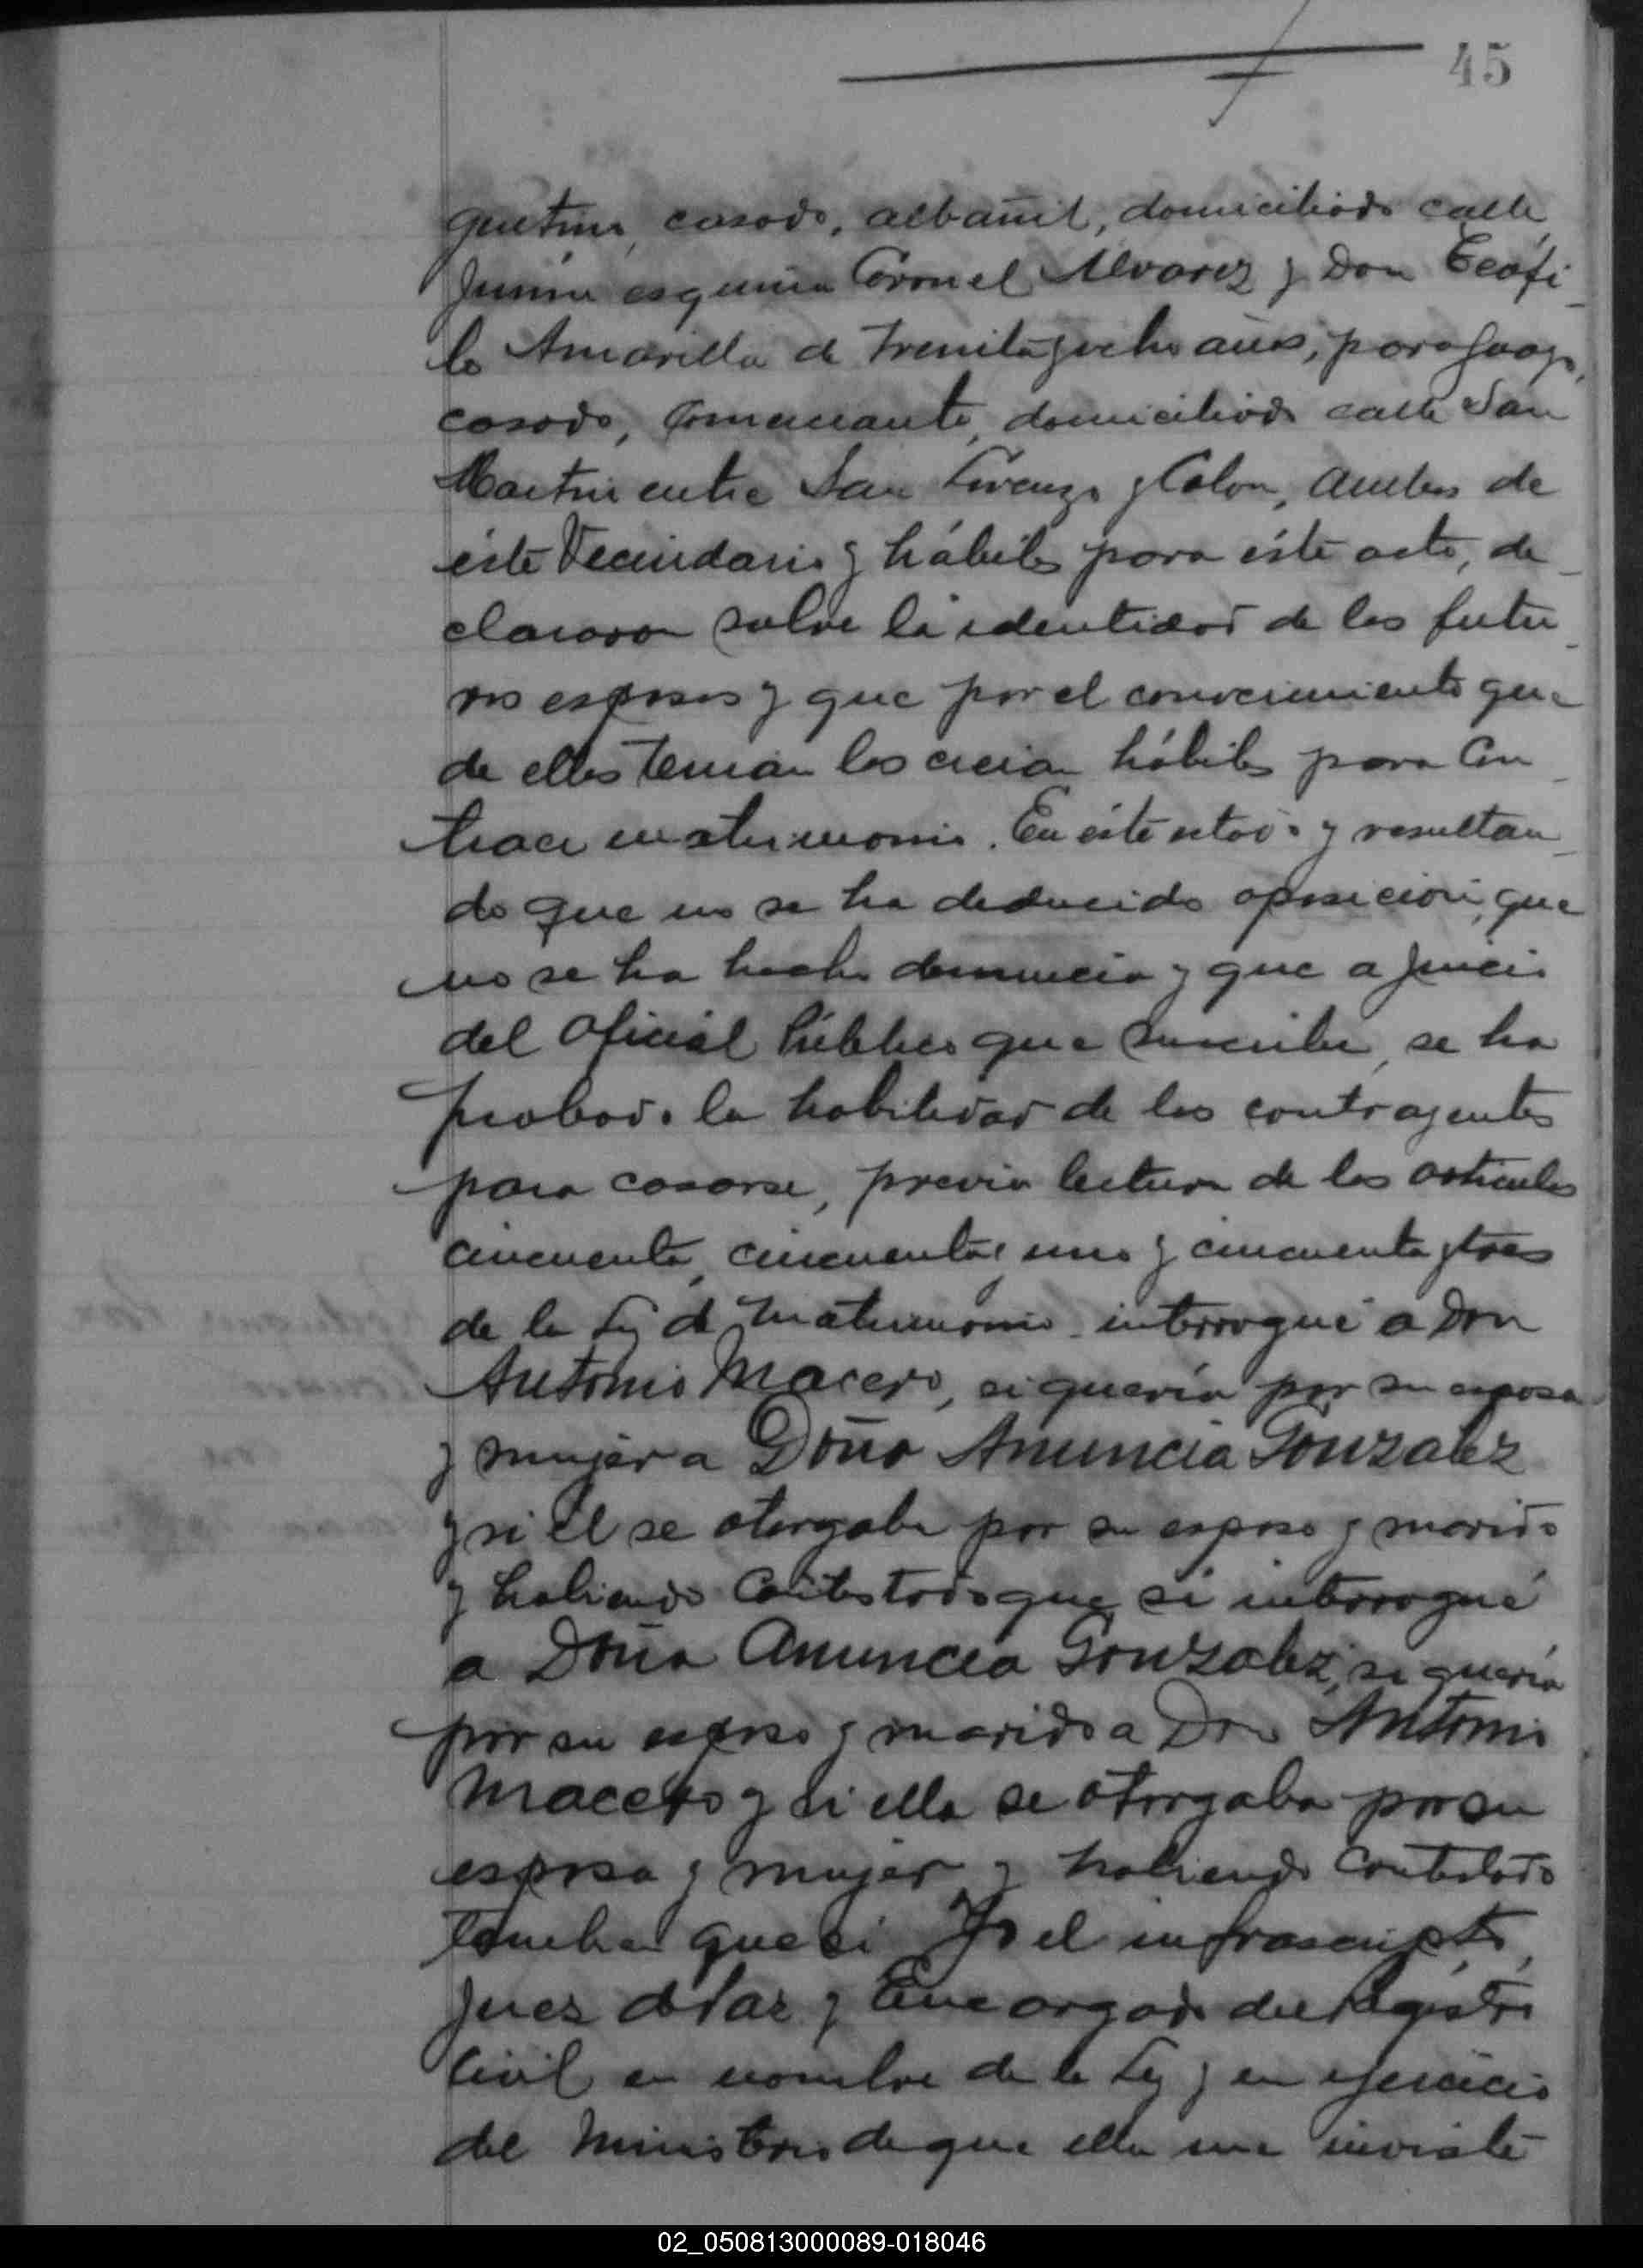 45
gentino, casado, albañil, domiciliado calle
Junin esquina Coronel Alvarez y Don Teofi-
lo Amarilla de treinta y ocho años, paraguayo,
casado, Comerciante, domiciliado calle San
Martin entre San Lorenzo y Colon, ambos de
éste Vecindario y hábiles para éste acto, de-
clararon sobre la identidad de los futu-
ros esposos y que por el conocimiento que
de ellos tenian los creian hábiles para Con-
traer matrimonio. En éste estado y resultan-
do que no se ha deducido oposición, que
no se ha hecho denuncia y que a juicio
del Oficial Público que suscribe, se ha
probado la habilidad de los contrayentes
para casarse, previa lectura de los articulos
cincuenta, cincuenta y uno y cincuenta y tres
de la Ley de Matrimonio interrogué a Don
Antonio Macero, si quería por su esposa
y mujer a Doña Anuncia Gonzalez
y si él se otorgaba por su esposo y marido
y habiendo Contestado que si interrogué
a Doña Anuncia Gonzalez, si quería
por su esposo y marido a Don Antonio
Macero y si ella se otorgaba por su
esposa y mujer y habiendo Contestado
tambien que si Yo el infrascripto,
Juez de Paz y Encargado del Registro
Civil en nombre de la Ley y en ejercicio
del Ministerio de que ella me inviste
02_050813000089-018046